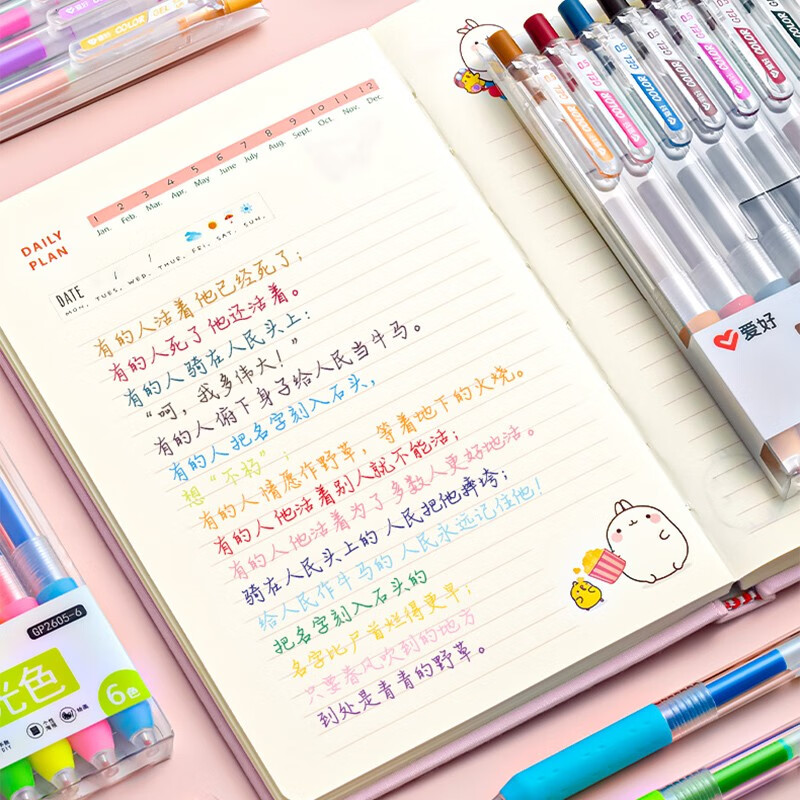 DAILY
PLAN
1 2 3 4 5 6 7 8 9 10 11 12
Jan. Feb. Mar. Apr. May June July Aug. Sept. Oct. Nov. Dec.
DATE / /
MON. TUES. WED. THUR. FRI. SAT. SUN.
有的人活着他已经死了；
有的人死了他还活着。
有的人骑在人民头上：
“呵，我多伟大！”
有的人俯下身子给人民当牛马。
有的人把名字刻入石头，
想“不朽”；
有的人情愿作野草，等着地下的火烧。
有的人他活着别人就不能活；
有的人他活着为了多数人更好地活。
骑在人民头上的人民把他摔垮；
给人民作牛马的人民永远记住他！
把名字刻入石头的
名字比尸首烂得更早；
只要春风吹到的地方
到处是青青的野草。
COLOR GEL
GEL COLOR
GEL COLOR
GEL COLOR
GEL COLOR
GEL COLOR
爱好
GP2605-6
光色
6色